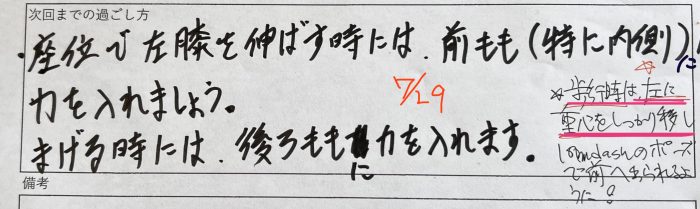 次回までの過ごし方
・座位で左膝を伸ばす時には、前もも(特に内側)に
力を入れましょう。
7/29
まげる時には、後ろももに力を入れます。
☆歩行時は、左に
重心をしっかり移し
のポーズ
で前へ出られるよ
うに!
備考